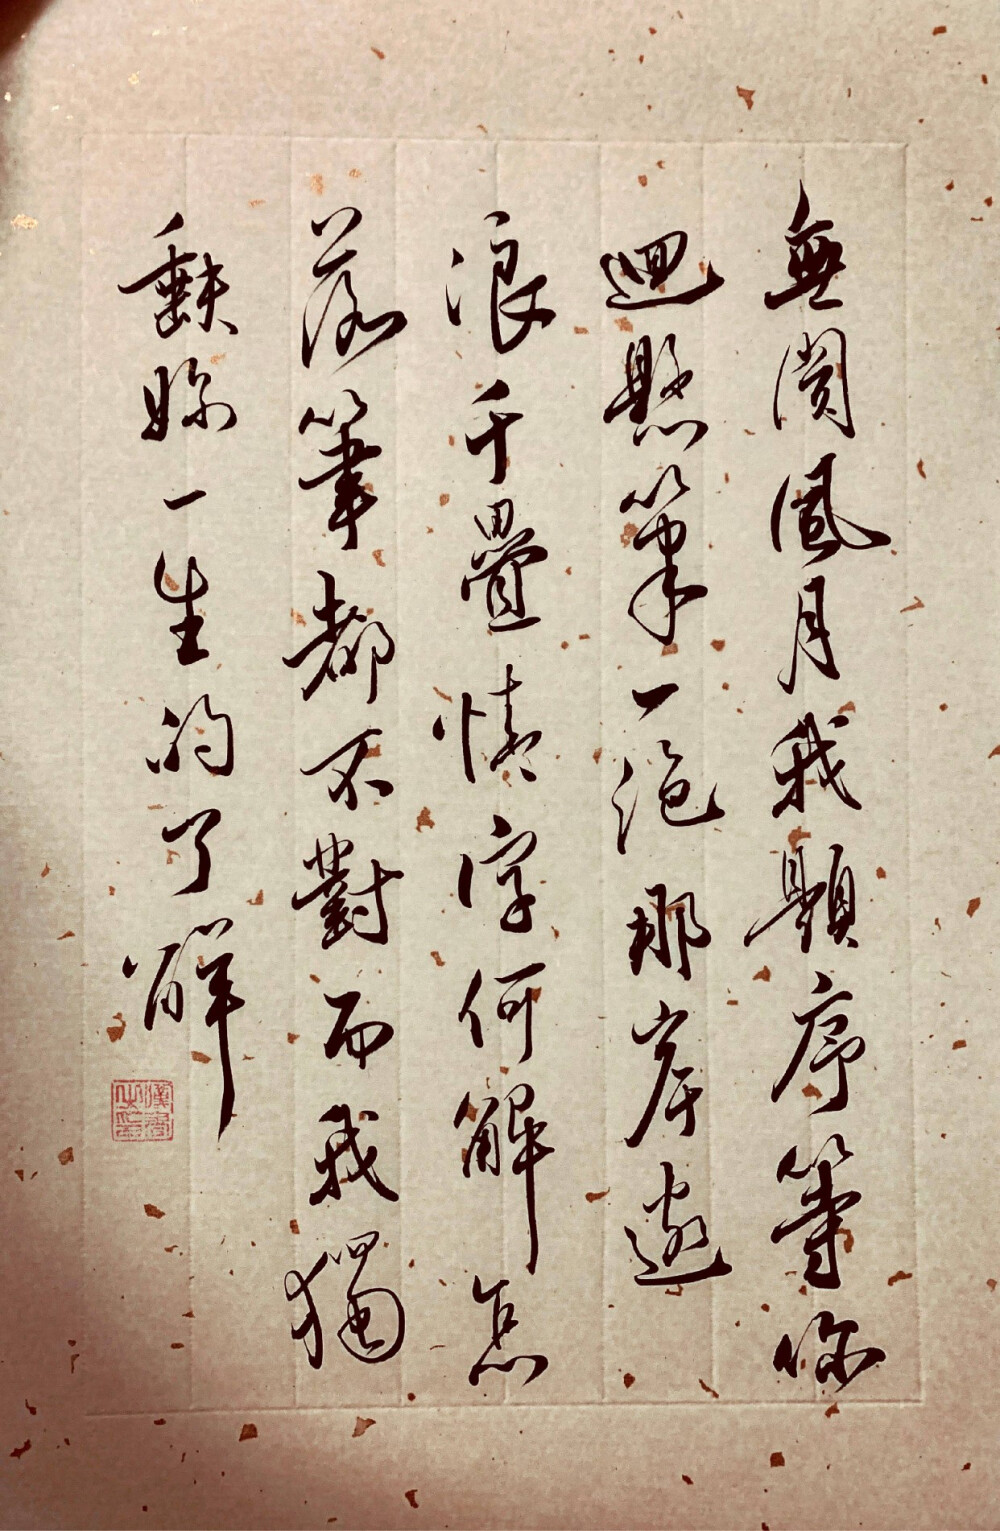 無關風月我題序等你
迴懸筆一絕那岸邀
浪千疊情字何解怎
落筆都不對而我獨
缺妳一生的了解